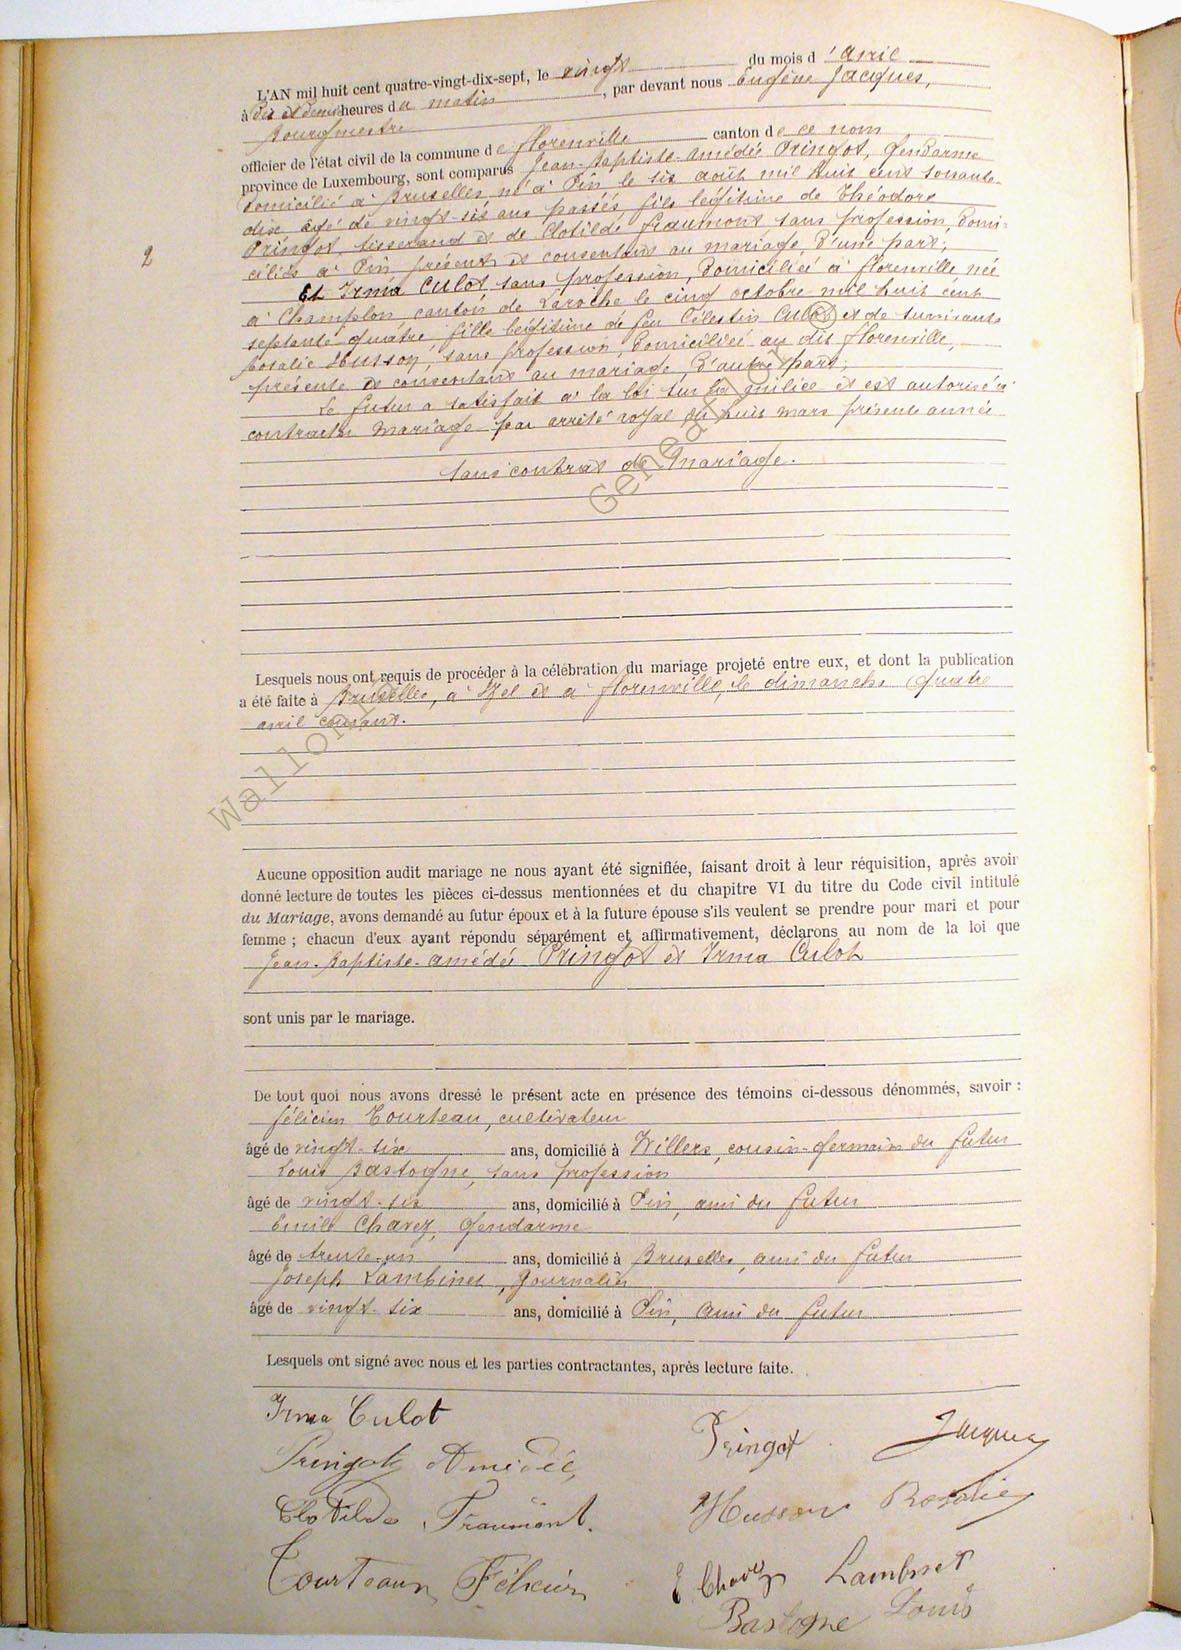 2
L'AN mil huit cent quatre-vingt-dix-sept, le vingt du mois d'avril
à dix et demie heures du matin, par devant nous Eugène Jacques,
Bourgmestre
officier de l'état civil de la commune de Florenville canton de ce nom
province de Luxembourg, sont comparus Jean-Baptiste-Amédée Pringot, gendarme
domicilié à Bruxelles, né à Pin le six août mil huit cent soixante-
dix âgé de vingt-six ans passés fils légitime de Théodore
Pringot, tisserand et de Clotilde Fraumont sans profession, domi-
ciliés à Pin, présents et consentants au mariage, d'une part;
Et Irma Culot sans profession, domiciliée à Florenville née
à Champlon canton de Laroche le cinq octobre mil huit cent
septante-quatre, fille légitime de feu Célestin Culot et de survivante
Rosalie Husson, sans profession, domiciliée au dit Florenville,
présente et consentant au mariage, d'autre part;
Le futur a satisfait à la loi sur la milice et est autorisé à
contracter mariage par arrêté royal du huit mars présente année
sans contrat de mariage.
Lesquels nous ont requis de procéder à la célébration du mariage projeté entre eux, et dont la publication
a été faite à Bruxelles, à Izel et à Florenville, le dimanche quatre
avril courant.
Aucune opposition audit mariage ne nous ayant été signifiée, faisant droit à leur réquisition, après avoir
donné lecture de toutes les pièces ci-dessus mentionnées et du chapitre VI du titre du Code civil intitulé
du Mariage, avons demandé au futur époux et à la future épouse s'ils veulent se prendre pour mari et pour
femme ; chacun d'eux ayant répondu séparément et affirmativement, déclarons au nom de la loi que
Jean-Baptiste-Amédée Pringot et Irma Culot
sont unis par le mariage.
De tout quoi nous avons dressé le présent acte en présence des témoins ci-dessous dénommés, savoir :
Félicien Tourteau, cultivateur
âgé de vingt-six ans, domicilié à Willers, cousin-germain du futur
Louis Bastogne, sans profession
âgé de vingt-six ans, domicilié à Pin, ami du futur
Emile Chavez, gendarme
âgé de trente-un ans, domicilié à Bruxelles, ami du futur
Joseph Lambinet, journalier
âgé de vingt-six ans, domicilié à Pin, ami du futur
Lesquels ont signé avec nous et les parties contractantes, après lecture faite.
Irma Culot Pringot Jacques
Pringot Amédée
Clotilde Fraumont. Husson Rosalie
Tourteau Félicien E Chavez Lambinet
Bastogne Louis
Wallonia Geneanet